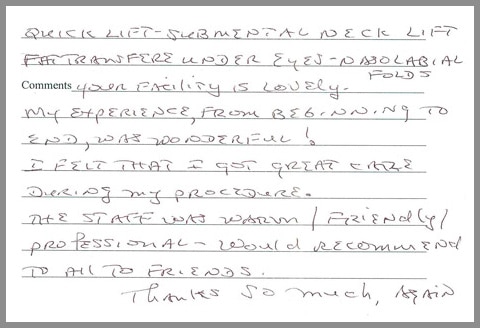 QUICK LIFT-SUBMENTAL NECK LIFT
FAT TRANSFERE UNDER EYES-NASOLABIAL
FOLDS
Comments your FACILITY IS LOVELY.
My EXPERIENCE, FROM BEGINNING TO
END, WAS WONDERFUL!
I FELT THAT I GOT GREAT CARE
DURING my PROCEDURE.
THE STAFF WAS WARM / FRIENDLY /
PROFESSIONAL - WOULD RECOMMEND
TO All TO FRIENDS.
THANKS SO much, AGAIN